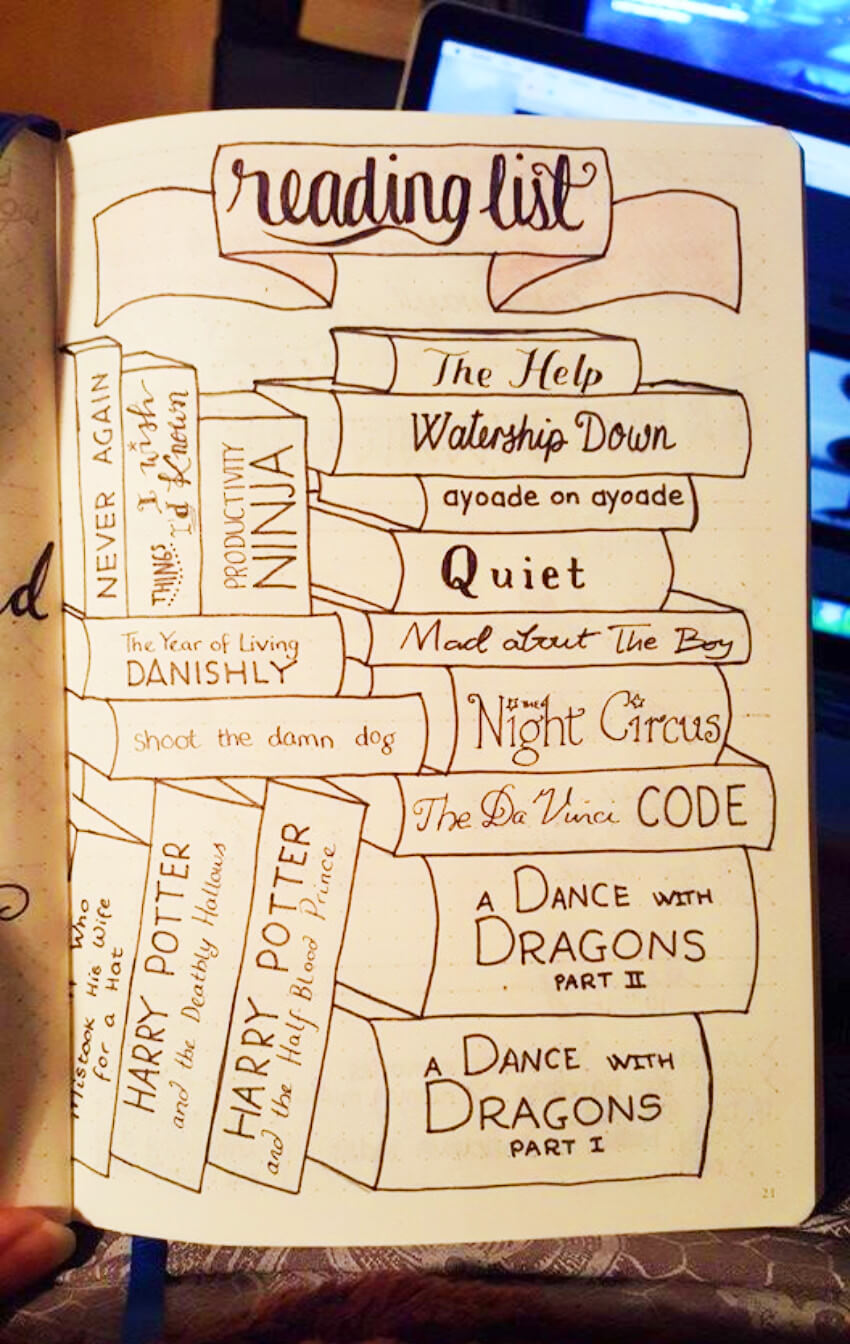 reading list
The Help
Watership Down
ayoade on ayoade
Quiet
Mad about The Boy
THE
Night Circus
The Da Vinci CODE
A DANCE WITH
DRAGONS
PART II
A DANCE WITH
DRAGONS
PART I
NEVER AGAIN
THINGS I wish
I'd Known
PRODUCTIVITY
NINJA
The Year of Living
DANISHLY
shoot the damn dog
Who
Mistook His Wife
for a Hat
HARRY POTTER
and the Deathly Hallows
HARRY POTTER
and the Half-Blood Prince
d
21